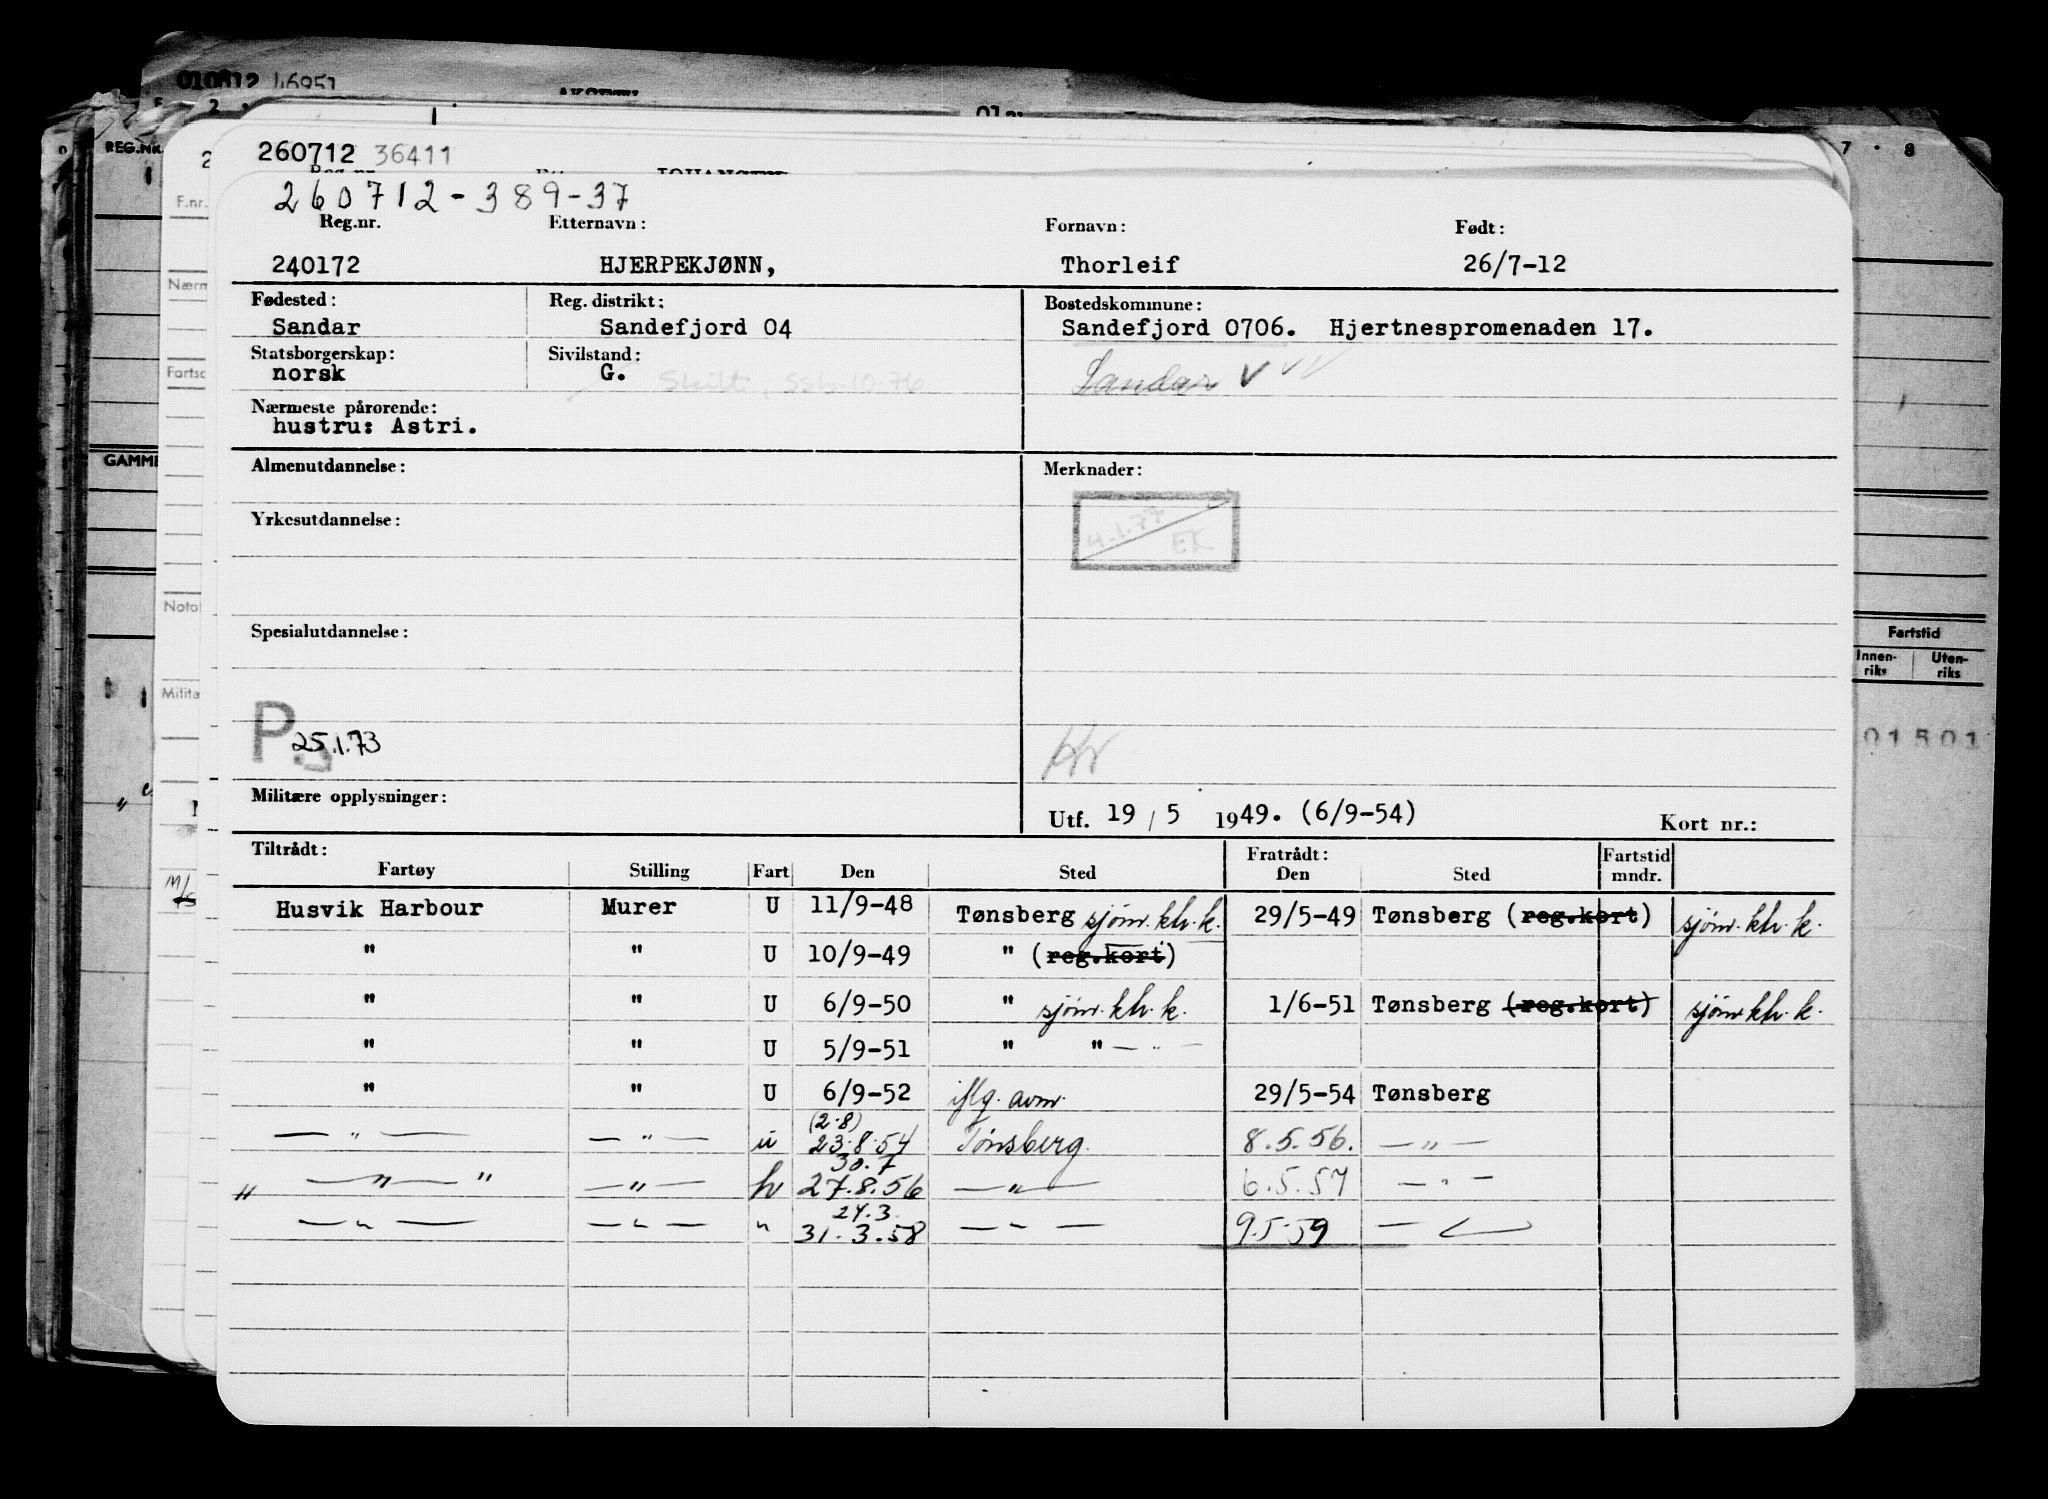 010812 46951
REG.NR.
7 · 8
260712 36411
260712-389-37
Reg.nr. Etternavn: Fornavn: Født:
240172 HJERPEKJØNN, Thorleif 26/7-12
Fødested: Reg. distrikt: Bostedskommune:
Sandar Sandefjord 04 Sandefjord 0706. Hjertnespromenaden 17.
Statsborgerskap: Sivilstand:
norsk G. Sandar V
Nærmeste pårørende:
hustru: Astri.
Almenutdannelse: Merknader:
4.1.77
EK
Yrkesutdannelse:
Spesialutdannelse:
P 25.1.73
Militære opplysninger: Utf. 19 / 5 1949. (6/9-54) Kort nr.:
Tiltrådt: Fratrådt: Fartstid
Fartøy Stilling Fart Den Sted Den Sted mndr.
Husvik Harbour Murer U 11/9-48 Tønsberg sjømr. kh. k. 29/5-49 Tønsberg (reg.kort) sjømr. kh. k.
" " U 10/9-49 " (reg.kort)
" " U 6/9-50 " sjømr. kh. k. 1/6-51 Tønsberg (reg.kort) sjømr. kh. k.
" " U 5/9-51 " " — " —
" " U 6/9-52 iflg. avmr. 29/5-54 Tønsberg
(2.8)
— " — — " — u 23.8.54 Tønsberg. 8.5.56. — " —
30.7
" — " — " — " — h 27.8.56 — " — 6.5.57 — " —
24.3
— " — — " — " 31.3.58 — " — 9.5.59 —
Fartstid
Innen-riks Uten-riks
01501